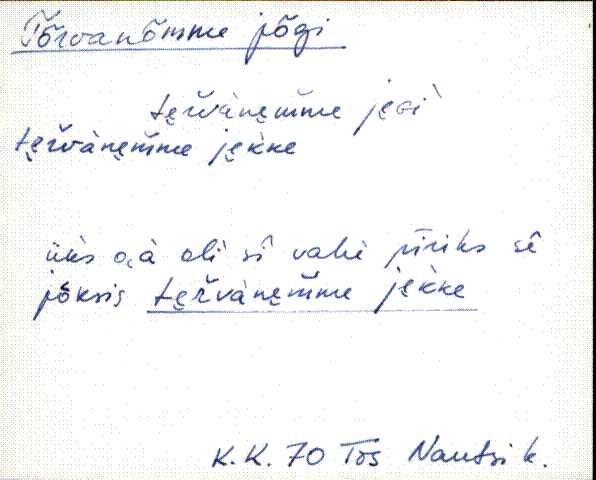 Tõrvanõmme jõgi
tę̆rvànęm̆me jęGì
tę̆rvànęm̆me jęk̀ke
ük̀s o̬jà olì sī̂ vahè pīriks sē̂
jõksis tę̆rvànęm̆me jęk̀ke
K.K. 70 Trs Nautsi k.